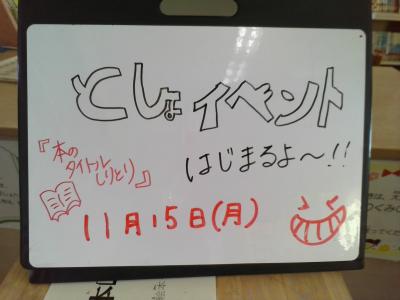 としょイベント
『本の
タイトル
しりとり』
はじまるよ～!!
11月15日(月)